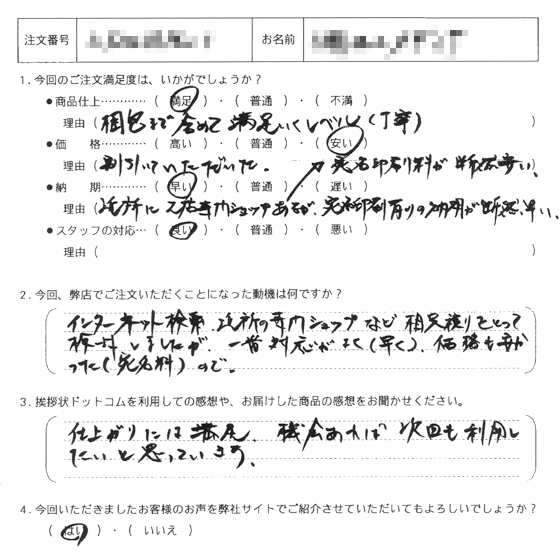 注文番号 お名前
1.今回のご注文満足度は、いかがでしょうか？
●商品仕上…………（ 満足 ）・（ 普通 ）・（ 不満 ）
理由（梱包まで含めて満足いくレベル（丁寧）
●価　　格…………（ 高い ）・（ 普通 ）・（ 安い ）
理由（割引いていただいた。 宛名印刷料が断然安い。
●納　　期…………（ 早い ）・（ 普通 ）・（ 遅い ）
理由（近所に 専門ショップあるが、宛名印刷有りの納期が断然早い。
●スタッフの対応…（ 良い ）・（ 普通 ）・（ 悪い ）
理由（ ）
2.今回、弊店でご注文いただくことになった動機は何ですか？
インターネット検索、近所の専門ショップなど相見積りをとって
検討しましたが、一番対応がよく（早く）、価格も安か
った（宛名料）ので。
3.挨拶状ドットコムを利用しての感想や、お届けした商品の感想をお聞かせください。
仕上がりには満足、機会あれば次回も利用し
たいと思っています。
4.今回いただきましたお客様のお声を弊社サイトでご紹介させていただいてもよろしいでしょうか？
（ はい ）・（ いいえ ）